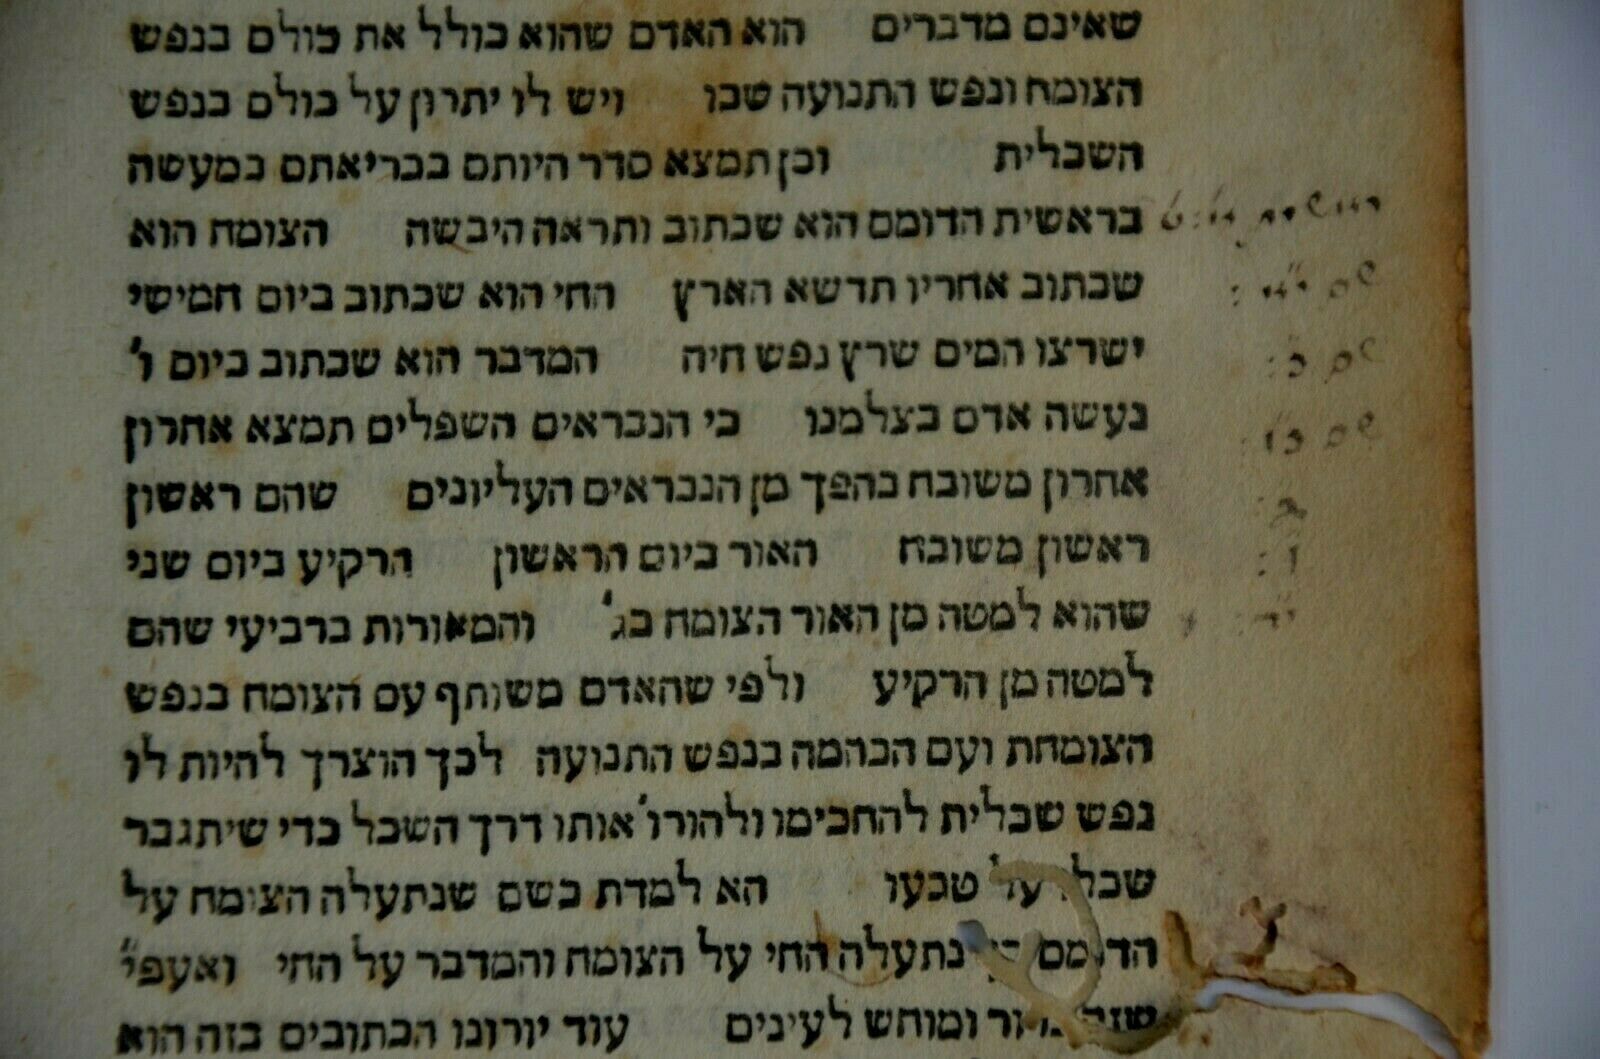 שאינם מדברים הוא האדם שהוא כולל את כולם בנפש
הצומח ונפש התנועה שבו ויש לו יתרון על כולם בנפש
השכלית וכן תמצא סדר היותם בבריאתם במעשה
בראשית הדומם הוא שכתוב ותראה היבשה הצומח הוא
שכתוב אחריו תדשא הארץ החי הוא שכתוב ביום חמישי
ישרצו המים שרץ נפש חיה המדבר הוא שכתוב ביום ו'
נעשה אדם בצלמנו כי הנבראים השפלים תמצא אחרון
אחרון משובח בהפך מן הנבראים העליונים שהם ראשון
ראשון משובח האור ביום הראשון הרקיע ביום שני
שהוא למטה מן האור הצומח בג' והמאורות ברביעי שהם
למטה מן הרקיע ולפי שהאדם משותף עם הצומח בנפש
הצומחת ועם הבהמה בנפש התנועה לכך הוצרך להיות לו
נפש שכלית להחכימו ולהורו' אותו דרך השכל כדי שיתגבר
שכלו על טבעו הא למדת כשם שנתעלה הצומח על
הדומם כך נתעלה החי על הצומח והמדבר על החי ואעפי"
ומוחש לעינים עוד יורונו הכתובים בזה הוא